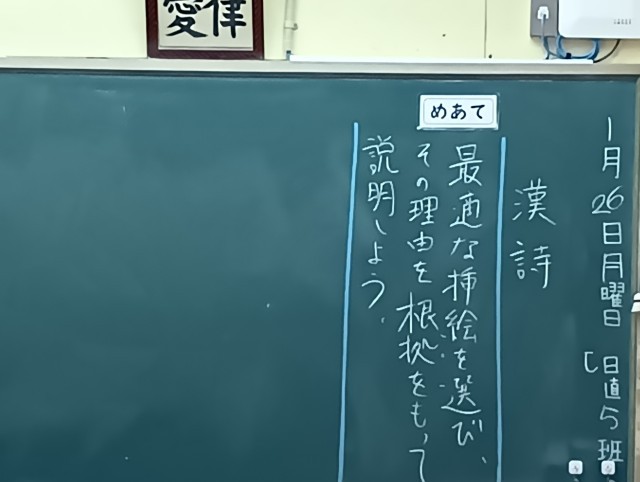 愛律
1月26日月曜日 [日直5班
漢詩
めあて
最適な挿絵を選び、
その理由を根拠をもって
説明しよう。